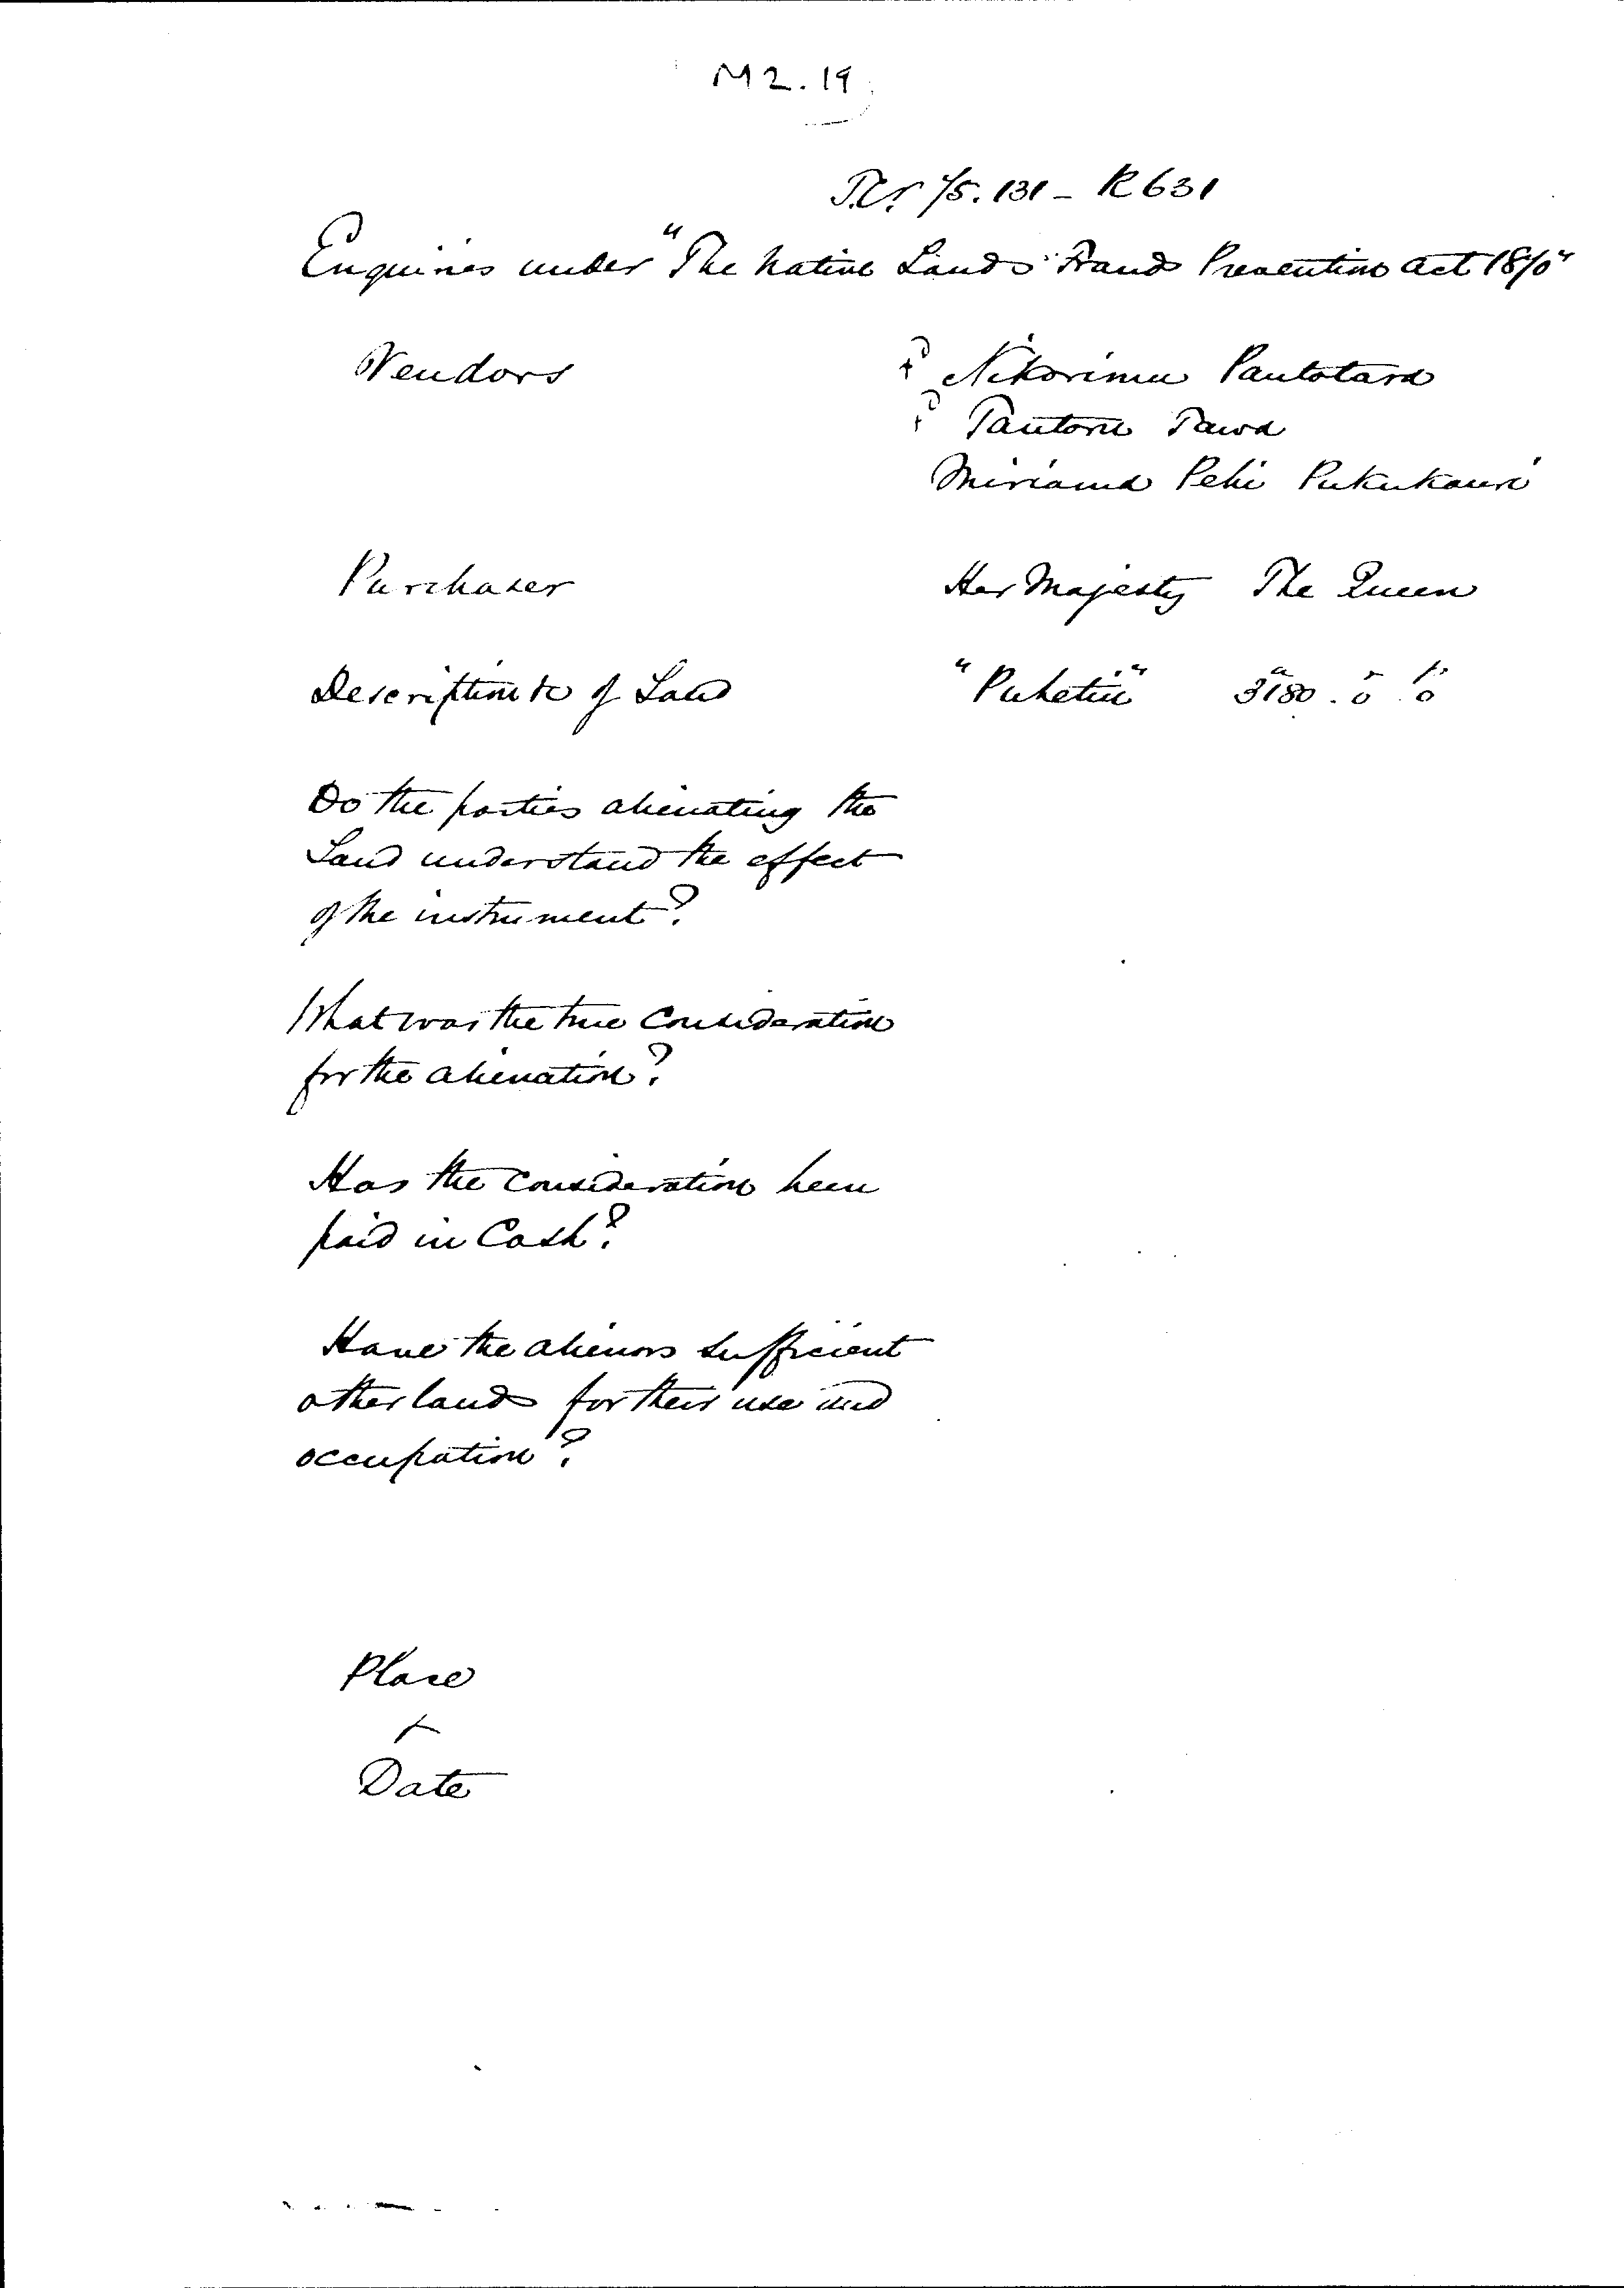 M2.19
75.131 - R631
Enquiries under "The Native Lands Frauds Prevention Act 1870"
Vendors
Nikorima Pautotara
Tautoru Tawa
Miriama Pehi Pukukauri
Purchaser Her Majesty The Queen
Description &c of Land "Puketii" a 3180. r 0 p. 0
Do the parties alienating the
Land understand the effect
of the instrument?
What was the true Consideration
for the alienation?
Has the consideration been
paid in Cash?
Have the alienors sufficient
other lands for their use and
occupation?
Place
+
Date